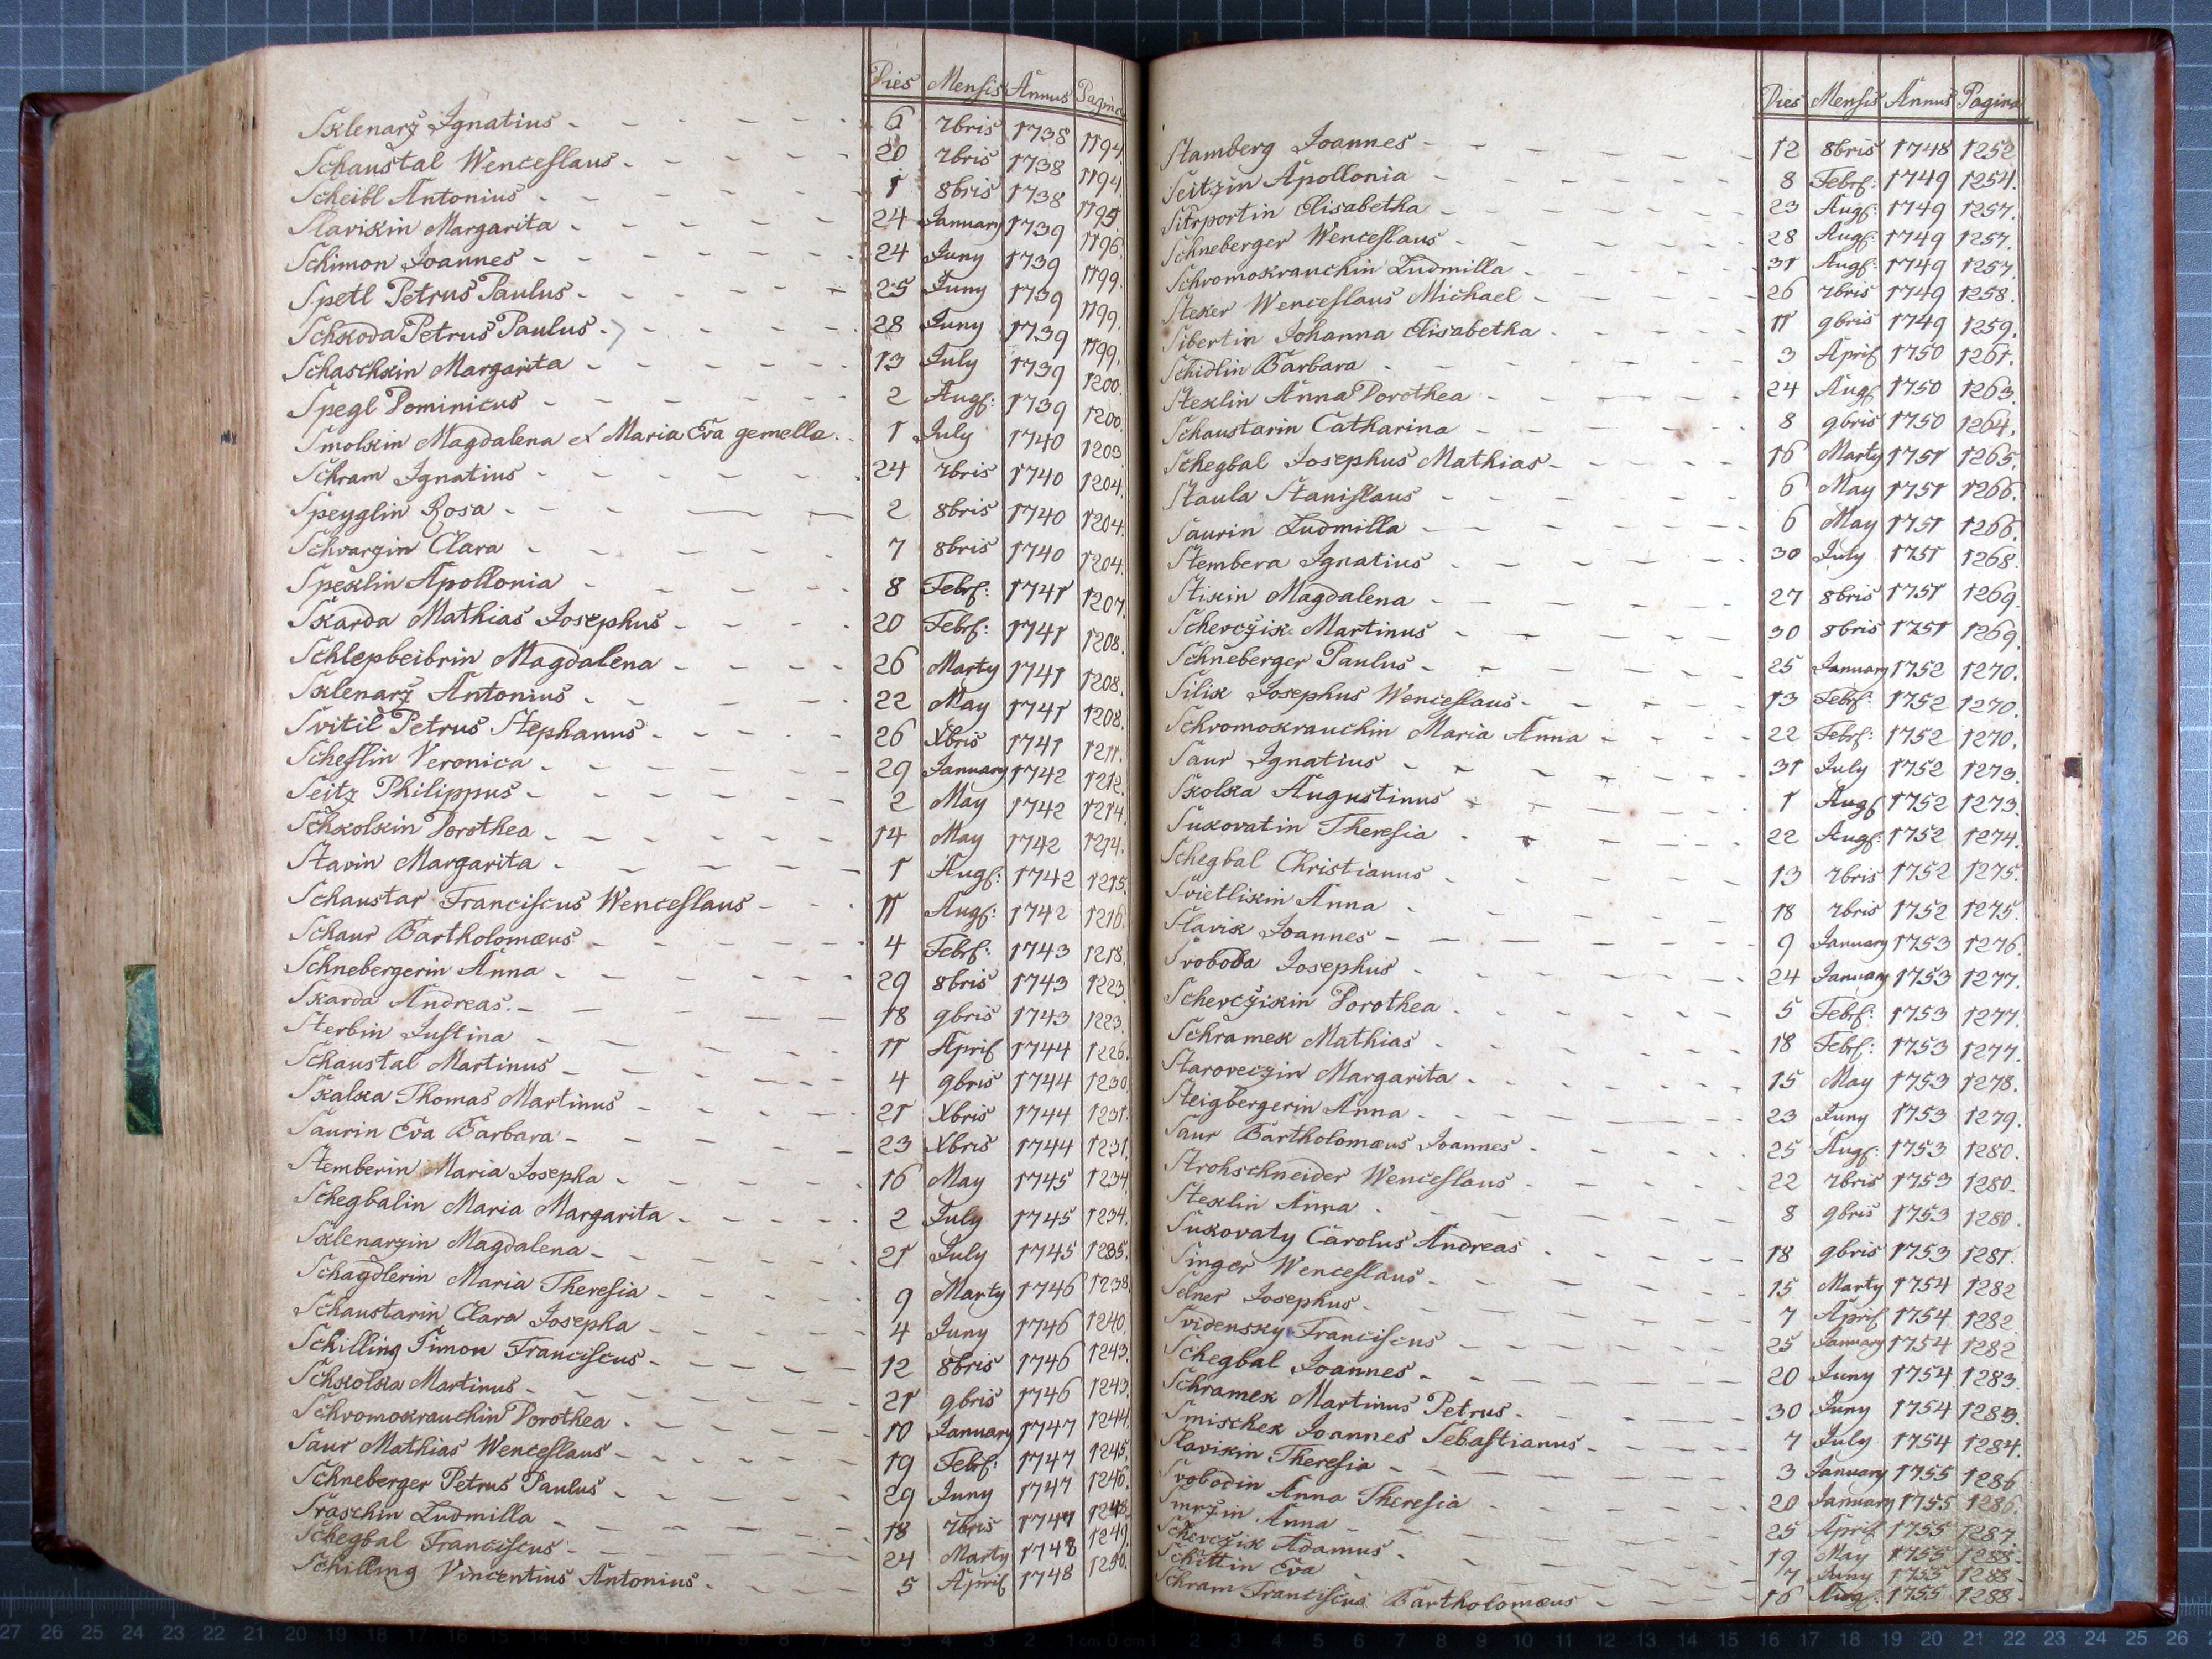 Dies Mensis Annus Pagina
Sklenarž Ignatius 6 7bris 1738 1194.
Schaustal Wenceslaus 20 7bris 1738 1194.
Scheibl Antonius 1 8bris 1738 1195
Slavikin Margarita 24 January 1739 1196.
Schimon Joannes 24 Juny 1739 1199.
Spetl Petrus Paulus 25 Juny 1739 1199.
Schkoda Petrus Paulus 28 Juny 1739 1199.
Schaschkin Margarita 13 July 1739 1200.
Spegl Dominicus 2 Aug: 1739 1200.
Smolkin Magdalena et Maria Eva gemellæ 1 July 1740 1203
Schram Ignatius 24 7bris 1740 1204.
Speyglin Rosa 2 8bris 1740 1204.
Schvarzin Clara 7 8bris 1740 1204.
Speklin Apollonia 8 Febr: 1741 1207.
Skarda Mathias Josephus 20 Febr: 1741 1208.
Schlepbeibrin Magdalena 26 Marty 1741 1208.
Sklenarž Antonius 22 May 1741 1208.
Svitil Petrus Stephanus 26 Xbris 1741 1211.
Scheslin Veronica 29 January 1742 1212.
Seitz Philippus 2 May 1742 1214.
Schkolkin Dorothea 14 May 1742 1214.
Stavin Margarita 1 Aug: 1742 1215.
Schaustar Franciscus Wenceslaus 11 Aug: 1742 1216.
Schaur Bartholomæus 4 Febr: 1743 1218.
Schnebergerin Anna 29 8bris 1743 1223.
Skarda Andreas 18 9bris 1743 1223.
Sterbin Justina 11 April 1744 1226.
Schaustal Martinus 4 9bris 1744 1230
Skalka Thomas Martinus 21 Xbris 1744 1231.
Saurin Eva Barbara 23 Xbris 1744 1231.
Stemberin Maria Josepha 16 May 1745 1234.
Schegbalin Maria Margarita 2 July 1745 1234.
Sklenarzin Magdalena 21 July 1745 1235.
Schagdlerin Maria Theresia 9 Marty 1746 1238.
Schaustarin Clara Josepha 4 Juny 1746 1240.
Schilling Simon Franciscus 12 8bris 1746 1243.
Schkolka Martinus 21 9bris 1746 1243.
Schromokrauchin Dorothea 10 January 1747 1244.
Saur Mathias Wenceslaus 19 Febr: 1747 1245.
Schneberger Petrus Paulus 29 Juny 1747 1246.
Sraschin Ludmilla 18 7bris 1747 1248.
Schegbal Franciscus 24 Marty 1748 1249.
Schilling Vincentius Antonius 5 April 1748 1250.
Dies Mensis Annus Pagina
Stamberg Joannes 12 8bris 1748 1252
Seitzin Apollonia 8 Febr: 1749 1254.
Sitrportin Elisabetha 23 Aug: 1749 1257.
Schneberger Wenceslaus 28 Aug: 1749 1257.
Schromokrauchin Ludmilla 31 Aug: 1749 1257.
Steker Wenceslaus Michael 26 7bris 1749 1258.
Sibertin Johanna Elisabetha 11 9bris 1749 1259.
Schidlin Barbara 3 April 1750 1261.
Steklin Anna Dorothea 24 Aug 1750 1263.
Schaustarin Catharina 8 9bris 1750 1264.
Schegbal Josephus Mathias 16 Marty 1751 1265.
Staula Stanislaus 6 May 1751 1266.
Saurin Ludmilla 6 May 1751 1266.
Stembera Ignatius 30 July 1751 1268.
Stikin Magdalena 27 8bris 1751 1269.
Scherczik Martinus 30 8bris 1751 1269.
Schneberger Paulus 25 January 1752 1270.
Silik Josephus Wenceslaus 13 Febr: 1752 1270.
Schromokrauchin Maria Anna 22 Febr: 1752 1270.
Saur Ignatius 31 July 1752 1273.
Skolka Augustinus 1 Aug 1752 1273.
Sukovatin Theresia 22 Aug: 1752 1274.
Schegbal Christianus 13 7bris 1752 1275.
Svietlikin Anna 18 7bris 1752 1275.
Slavik Joannes 9 January 1753 1276.
Svoboda Josephus 24 January 1753 1277.
Scherczikin Dorothea 5 Febr: 1753 1277.
Schramek Mathias 18 Febr: 1753 1277.
Staroveczin Margarita 15 May 1753 1278.
Steigbergerin Anna 23 Juny 1753 1279.
Saur Bartholomæus Joannes 25 Aug: 1753 1280.
Strohschneider Wenceslaus 22 7bris 1753 1280.
Steklin Anna 8 9bris 1753 1280.
Sukovaty Carolus Andreas 18 9bris 1753 1281.
Singer Wenceslaus 15 Marty 1754 1282
Selner Josephus 7 April 1754 1282
Svidensky Franciscus 25 January 1754 1282
Schegbal Joannes 20 Juny 1754 1283.
Schramek Martinus Petrus 30 Juny 1754 1283.
Smischek Joannes Sebastianus 7 July 1754 1284.
Slavikin Theresia 3 January 1755 1286
Svobodin Anna Theresia 20 January 1755 1286.
Smržin Anna 25 April 1755 1287
Scherczik Adamus 19 May 1755 1288.
Schittin Eva 7 Juny 1755 1288.
Schram Franciscus Bartholomæus 16 Aug: 1755 1288.